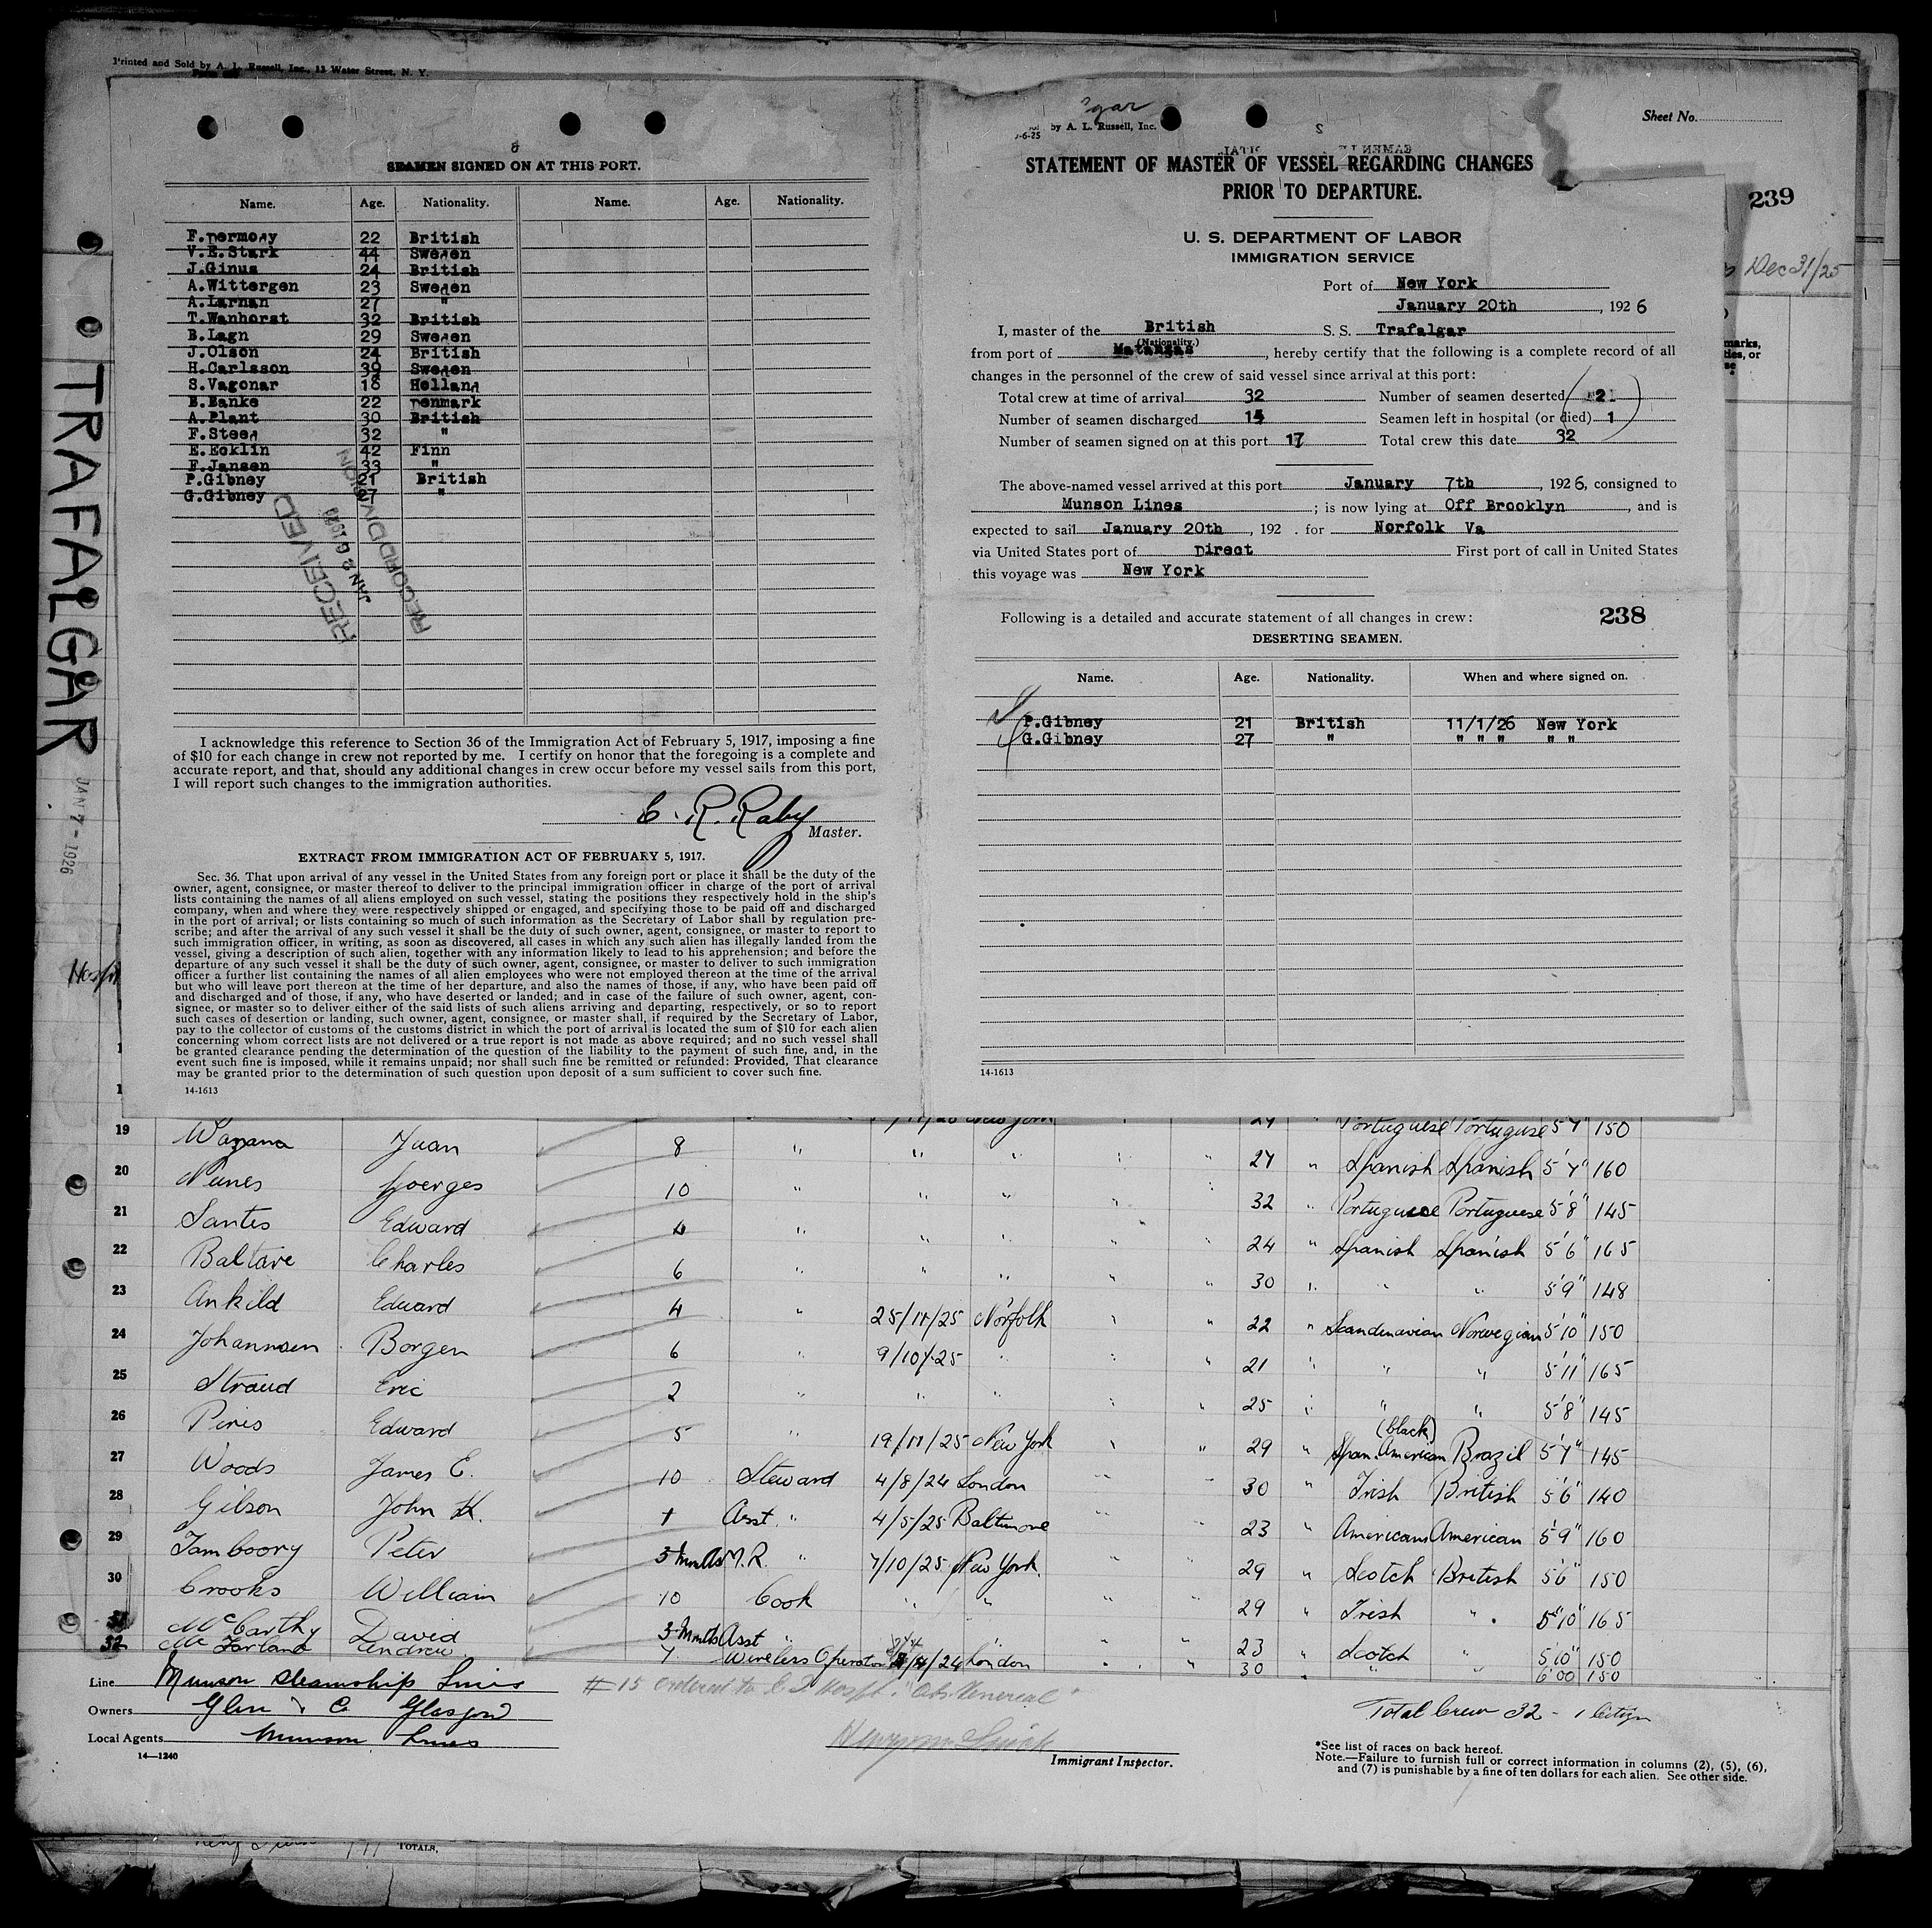 Printed and Sold by A. L. Russell, Inc., 13 Water Street, N. Y.
SEAMEN SIGNED ON AT THIS PORT.
Name. Age. Nationality. Name. Age. Nationality.
F.Dermody 22 British
V.E.Stark 44 Sweden
J.Ginus 24 British
A.Wittergen 23 Sweden
A.Larnan 27 "
T.Wanhorst 32 British
B.Lagn 29 Sweden
J.Olson 24 British
H.Carlsson 39 Sweden
S.Vagonar 18 Holland
B.Banke 22 Denmark
A.Plant 30 British
F.Steed 32 "
E.Ecklin 42 Finn
F.Jansen 33 "
P.Gibney 21 British
G.Gibney 27 "
RECEIVED
JAN 2 1926
RECORD DIVISION
I acknowledge this reference to Section 36 of the Immigration Act of February 5, 1917, imposing a fine
of $10 for each change in crew not reported by me. I certify on honor that the foregoing is a complete and
accurate report, and that, should any additional changes in crew occur before my vessel sails from this port,
I will report such changes to the immigration authorities.
C. R. Raby
Master.
EXTRACT FROM IMMIGRATION ACT OF FEBRUARY 5, 1917.
Sec. 36. That upon arrival of any vessel in the United States from any foreign port or place it shall be the duty of the
owner, agent, consignee, or master thereof to deliver to the principal immigration officer in charge of the port of arrival
lists containing the names of all aliens employed on such vessel, stating the positions they respectively hold in the ship's
company, when and where they were respectively shipped or engaged, and specifying those to be paid off and discharged
in the port of arrival; or lists containing so much of such information as the Secretary of Labor shall by regulation pre-
scribe; and after the arrival of any such vessel it shall be the duty of such owner, agent, consignee, or master to report to
such immigration officer, in writing, as soon as discovered, all cases in which any such alien has illegally landed from the
vessel, giving a description of such alien, together with any information likely to lead to his apprehension; and before the
departure of any such vessel it shall be the duty of such owner, agent, consignee, or master to deliver to such immigration
officer a further list containing the names of all alien employees who were not employed thereon at the time of the arrival
but who will leave port thereon at the time of her departure, and also the names of those, if any, who have been paid off
and discharged and of those, if any, who have deserted or landed; and in case of the failure of such owner, agent, con-
signee, or master so to deliver either of the said lists of such aliens arriving and departing, respectively, or so to report
such cases of desertion or landing, such owner, agent, consignee, or master shall, if required by the Secretary of Labor,
pay to the collector of customs of the customs district in which the port of arrival is located the sum of $10 for each alien
concerning whom correct lists are not delivered or a true report is not made as above required; and no such vessel shall
be granted clearance pending the determination of the question of the liability to the payment of such fine, and, in the
event such fine is imposed, while it remains unpaid; nor shall such fine be remitted or refunded: Provided, That clearance
may be granted prior to the determination of such question upon deposit of a sum sufficient to cover such fine.
14-1613
TRAFALGAR
JAN 7 - 1926
by A. L. Russell, Inc.
Sheet No.
STATEMENT OF MASTER OF VESSEL REGARDING CHANGES
PRIOR TO DEPARTURE.
239
Dec 31/25
U. S. DEPARTMENT OF LABOR
IMMIGRATION SERVICE
Port of New York
January 20th, 1926
I, master of the British S. S. Trafalgar
(Nationality.)
from port of Matanzas, hereby certify that the following is a complete record of all
changes in the personnel of the crew of said vessel since arrival at this port:
Total crew at time of arrival 32 Number of seamen deserted 2
Number of seamen discharged 14 Seamen left in hospital (or died) 1
Number of seamen signed on at this port 17 Total crew this date 32
The above-named vessel arrived at this port January 7th, 1926, consigned to
Munson Lines; is now lying at Off Brooklyn, and is
expected to sail January 20th, 192 . for Norfolk Va
via United States port of Direct First port of call in United States
this voyage was New York
Following is a detailed and accurate statement of all changes in crew: 238
DESERTING SEAMEN.
Name. Age. Nationality. When and where signed on.
P.Gibney 21 British 11/1/26 New York
G.Gibney 27 " " " " " "
14-1613
Portuguese Portuguese 5'7" 150
19 Juan 8 " " " " " 27 " Spanish Spanish 5'7" 160
20 Nunes Goerges 10 " " " " " 32 " Portuguese Portuguese 5'8" 145
21 Santis Edward 4 " " " " " 24 " Spanish Spanish 5'6" 165
22 Baltare Charles 6 " " " " " 30 " " " 5'9" 148
23 Ankild Edward 4 " 25/11/25 Norfolk " " 22 " Scandinavian Norwegian 5'10" 150
24 Johannsen Borgen 6 " 9/10/25 " " " 21 " " " 5'11" 165
25 Straud Eric 2 " " " " " 25 " " " 5'8" 145
(black)
26 Pires Edward 5 " 19/11/25 New York " " 29 " Span. American Brazil 5'7" 145
27 Woods James E. 10 Steward 4/8/24 London " " 30 " Irish British 5'6" 140
28 Gilson John K. 1 Asst. " 4/5/25 Baltimore " " 23 " American American 5'9" 160
29 Tamboory Peter 3 mnths M.R. " 7/10/25 New York. " " 29 " Scotch British 5'6" 150
30 Crooks William 10 Cook " " " " 29 " Irish " 5'10" 165
31 McCarthy David 3 Mnths Asst " " " 23 " Scotch " 5'10" 150
32 McFarland Andrew 7 Wireless Operator /24 London " " 30 " " " 6'00 150
Line Munson Steamship Lines
# 15 ordered to hospt.
Owners Glen & Co Glasgow
Total Crew 32 - 1 Citizen
Local Agents Munson Lines
14—1240
Immigrant Inspector.
*See list of races on back hereof.
Note.—Failure to furnish full or correct information in columns (2), (5), (6),
and (7) is punishable by a fine of ten dollars for each alien. See other side.
TOTALS,